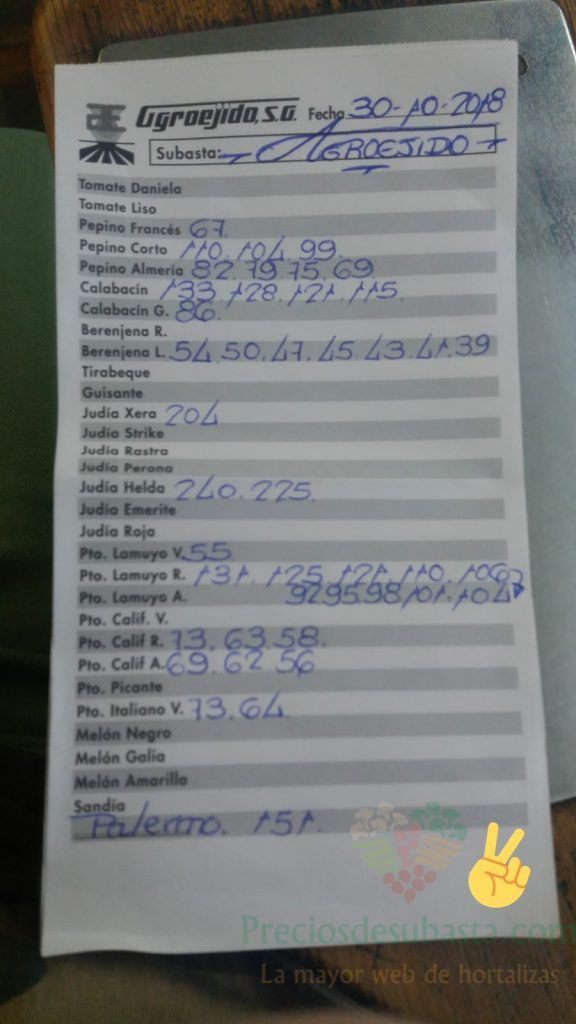 Agroejido, S.A. Fecha 30-10-2018
Subasta: - AGROEJIDO -
Tomate Daniela
Tomate Liso
Pepino Francés 67.
Pepino Corto 110.104.99.
Pepino Almería 82.79.75.69.
Calabacín 133.128.121.115.
Calabacín G. 86.
Berenjena R.
Berenjena L. 54.50.47.45.43.41.39
Tirabeque
Guisante
Judía Xera 204
Judía Strike
Judía Rastra
Judía Perona
Judía Helda 240.225.
Judía Emerite
Judía Roja
Pto. Lamuyo V. 55.
Pto. Lamuyo R. 131.125.121.110.106
Pto. Lamuyo A. 92.95.98.101.104
Pto. Calif. V.
Pto. Calif R. 73.63.58.
Pto. Calif A. 69.62.56
Pto. Picante
Pto. Italiano V. 73.64.
Melón Negro
Melón Galia
Melón Amarillo
Sandía
Palermo. 151.
Preciosdesubasta.com
La mayor web de hortalizas